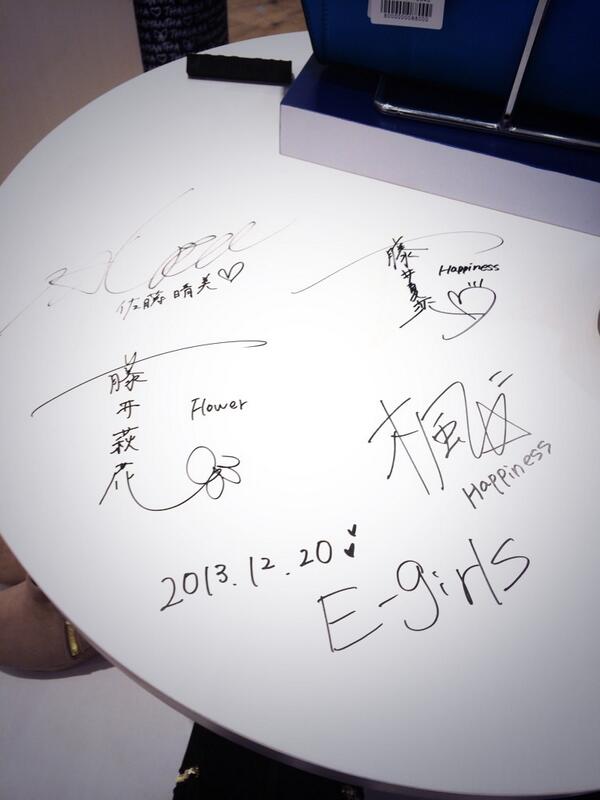 佐藤晴美♡
藤井夏恋
Happiness
藤井萩花
Flower
楓
Happiness
2013.12.20
E-girls